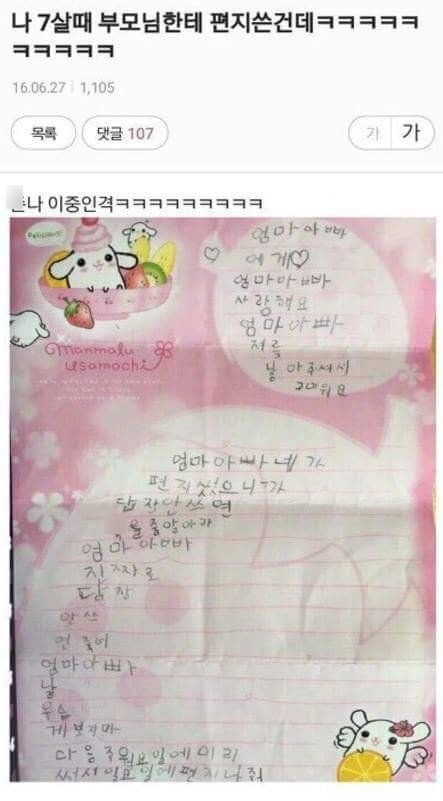 나 7살때 부모님한테 편지쓴건데ㅋㅋㅋㅋㅋ
ㅋㅋㅋㅋㅋ
16.06.27 1,105
목록
댓글 107
가
가
나 이중인격ㅋㅋㅋㅋㅋㅋㅋㅋㅋ
Delicious!
manmalu
usamochi
엄마아빠
에게♡
엄마아빠
사랑해요
엄마아빠
저를
낳아주셔서
고마워요
엄마아빠 네가
편지썼으니까
답장안쓰면
알아라
엄마아빠
진짜로
답장
안쓰
면 죽어
엄마아빠
날
우습
게보지마
다음주월요일에미리
써서일요일에편지나줘